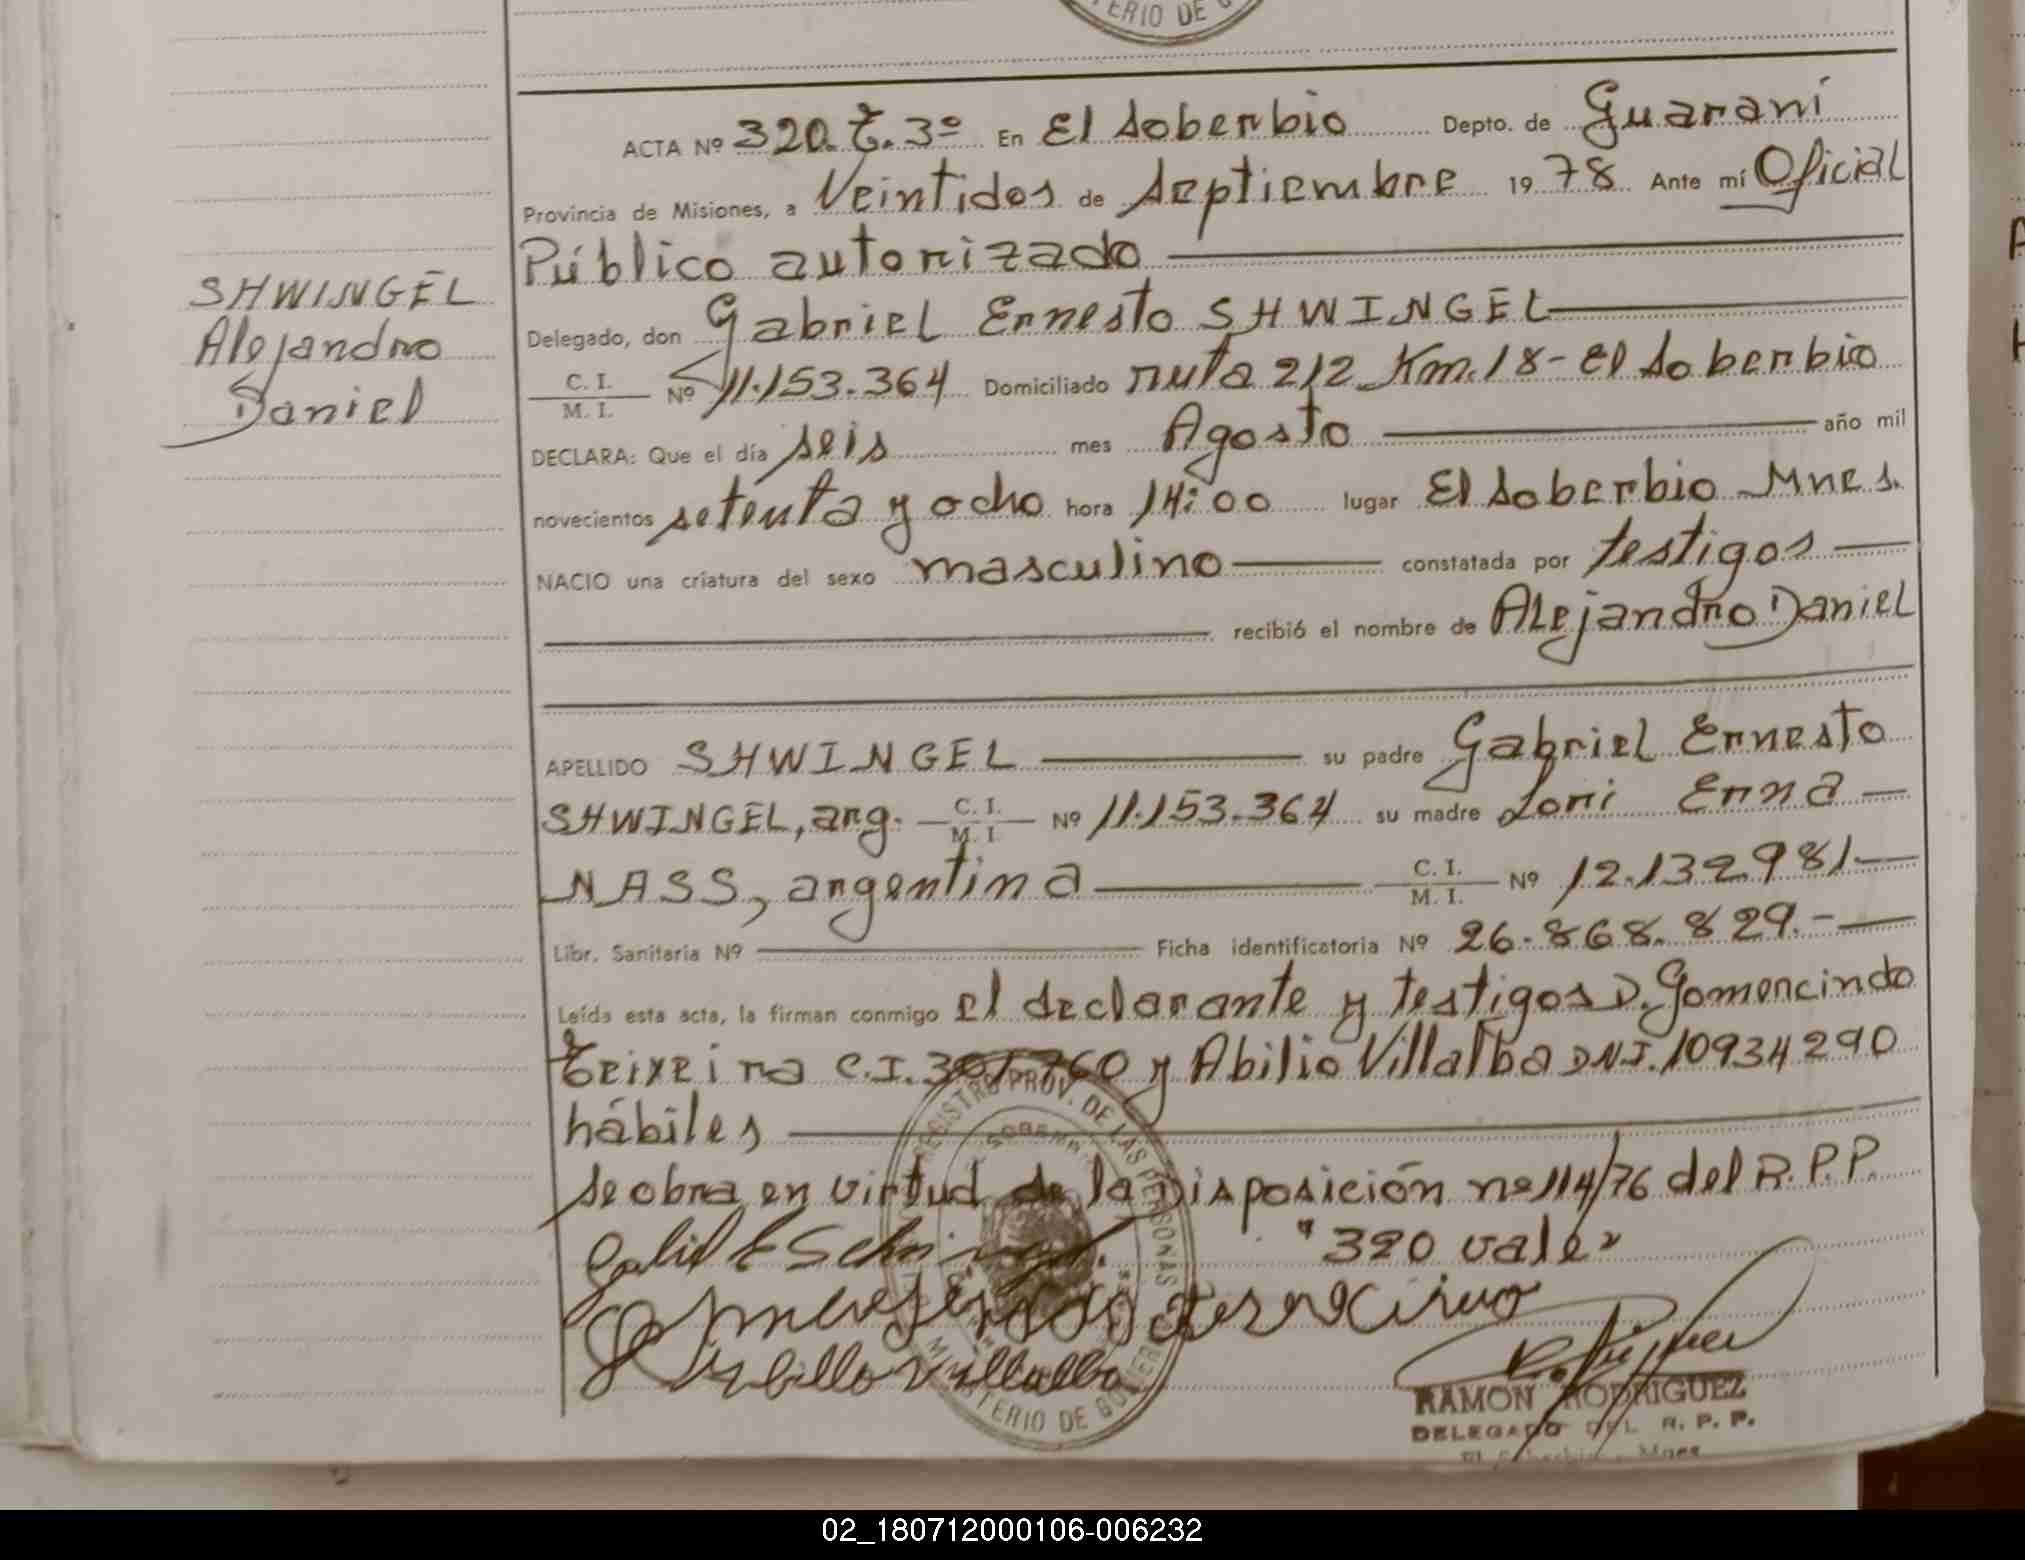 TERIO DE G
ACTA Nº 320. T. 3º En El Soberbio Depto. de Guaraní
Provincia de Misiones, a Veintidos de Septiembre 1978 Ante mí Oficial
Público autorizado
Delegado, don Gabriel Ernesto SHWINGEL
C. I.
M. I.
Nº 11.153.364 Domiciliado ruta 212 Km.18- El Soberbio
DECLARA: Que el día seis mes Agosto año mil
novecientos setenta y ocho hora 14:00 lugar El Soberbio Mnes.
NACIO una criatura del sexo masculino constatada por testigos
recibió el nombre de Alejandro Daniel
SHWINGEL
Alejandro
Daniel
APELLIDO SHWINGEL su padre Gabriel Ernesto
SHWINGEL, arg. C. I. M. I. Nº 11.153.364 su madre Lori Erna
NASS, argentina C. I. M. I. Nº 12.132.981.
Libr. Sanitaria Nº Ficha identificatoria Nº 26.868.829.-
Leída esta acta, la firman conmigo el declarante y testigos D. Gomercindo
Teixeira C.I. 301.760 y Abilio Villalba DNI. 10934290
hábiles
Se obra en virtud de la Disposición nº 114/76 del R.P.P.
"320 vale"
REGISTRO PROV. DE LAS PERSONAS
MINISTERIO DE GOBIERNO
RAMON RODRIGUEZ
DELEGADO DEL R. P. P.
El Soberbio - Mnes
02_180712000106-006232